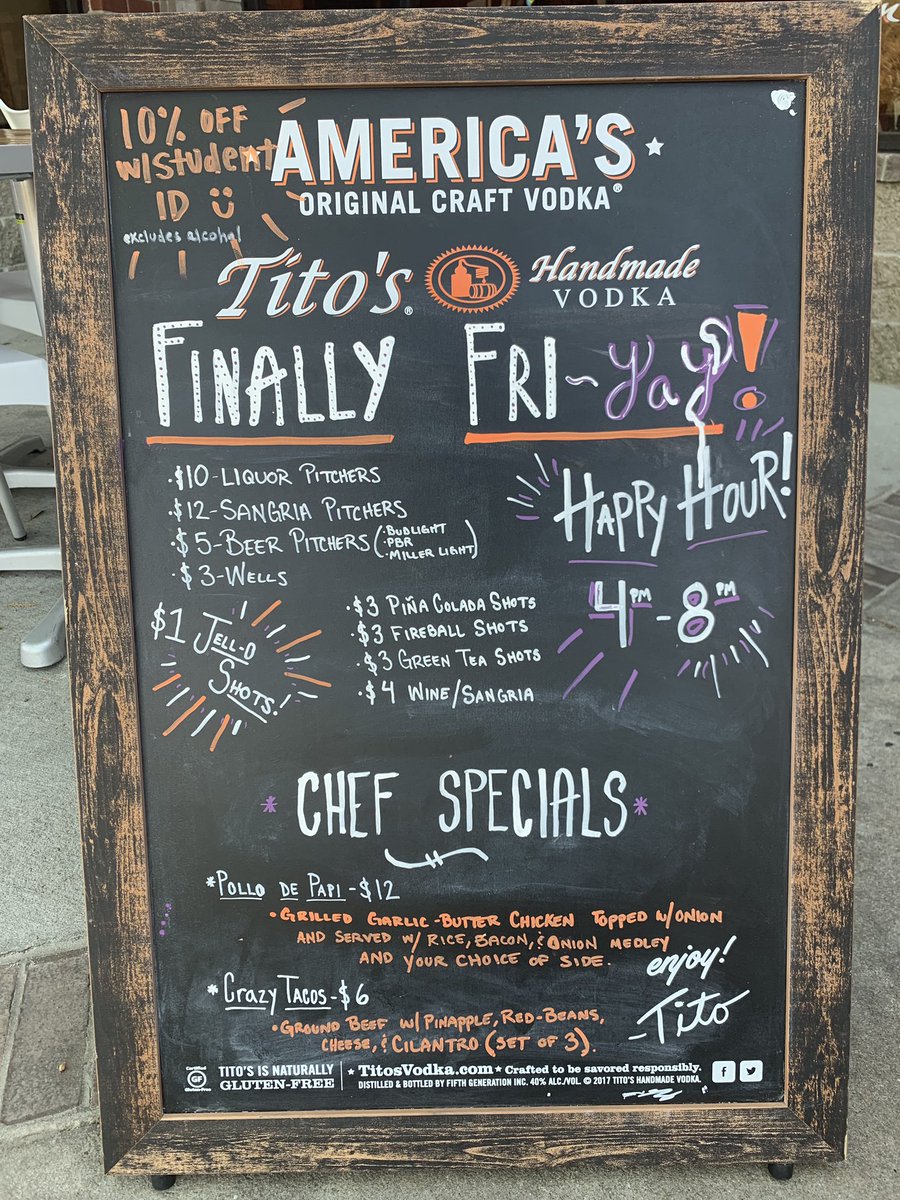 10% OFF
w/Student
ID
excludes alcohol
AMERICA'S
ORIGINAL CRAFT VODKA®
Tito's® Handmade
VODKA
FINALLY FRI~YAY!
·$10-LIQUOR PITCHERS
·$12-SANGRIA PITCHERS
·$5-BEER PITCHERS (·BUDLIGHT
·PBR
·MILLER LIGHT)
·$3-WELLS
HAPPY HOUR!
4PM-8PM
$1 JELL-O
SHOTS!
·$3 PIÑA COLADA SHOTS
·$3 FIREBALL SHOTS
·$3 GREEN TEA SHOTS
·$4 WINE/SANGRIA
*CHEF SPECIALS*
*POLLO DE PAPI-$12
·GRILLED GARLIC-BUTTER CHICKEN TOPPED W/ONION
AND SERVED W/ RICE, BACON, & ONION MEDLEY
AND YOUR CHOICE OF SIDE.
*CRAZY TACOS-$6
·GROUND BEEF W/PINAPPLE, RED-BEANS,
CHEESE, & CILANTRO (SET OF 3).
enjoy!
-Tito
Certified
GF
Gluten-Free
TITO'S IS NATURALLY
GLUTEN-FREE
★ TitosVodka.com ★ Crafted to be savored responsibly.
DISTILLED & BOTTLED BY FIFTH GENERATION INC. 40% ALC./VOL. © 2017 TITO'S HANDMADE VODKA.